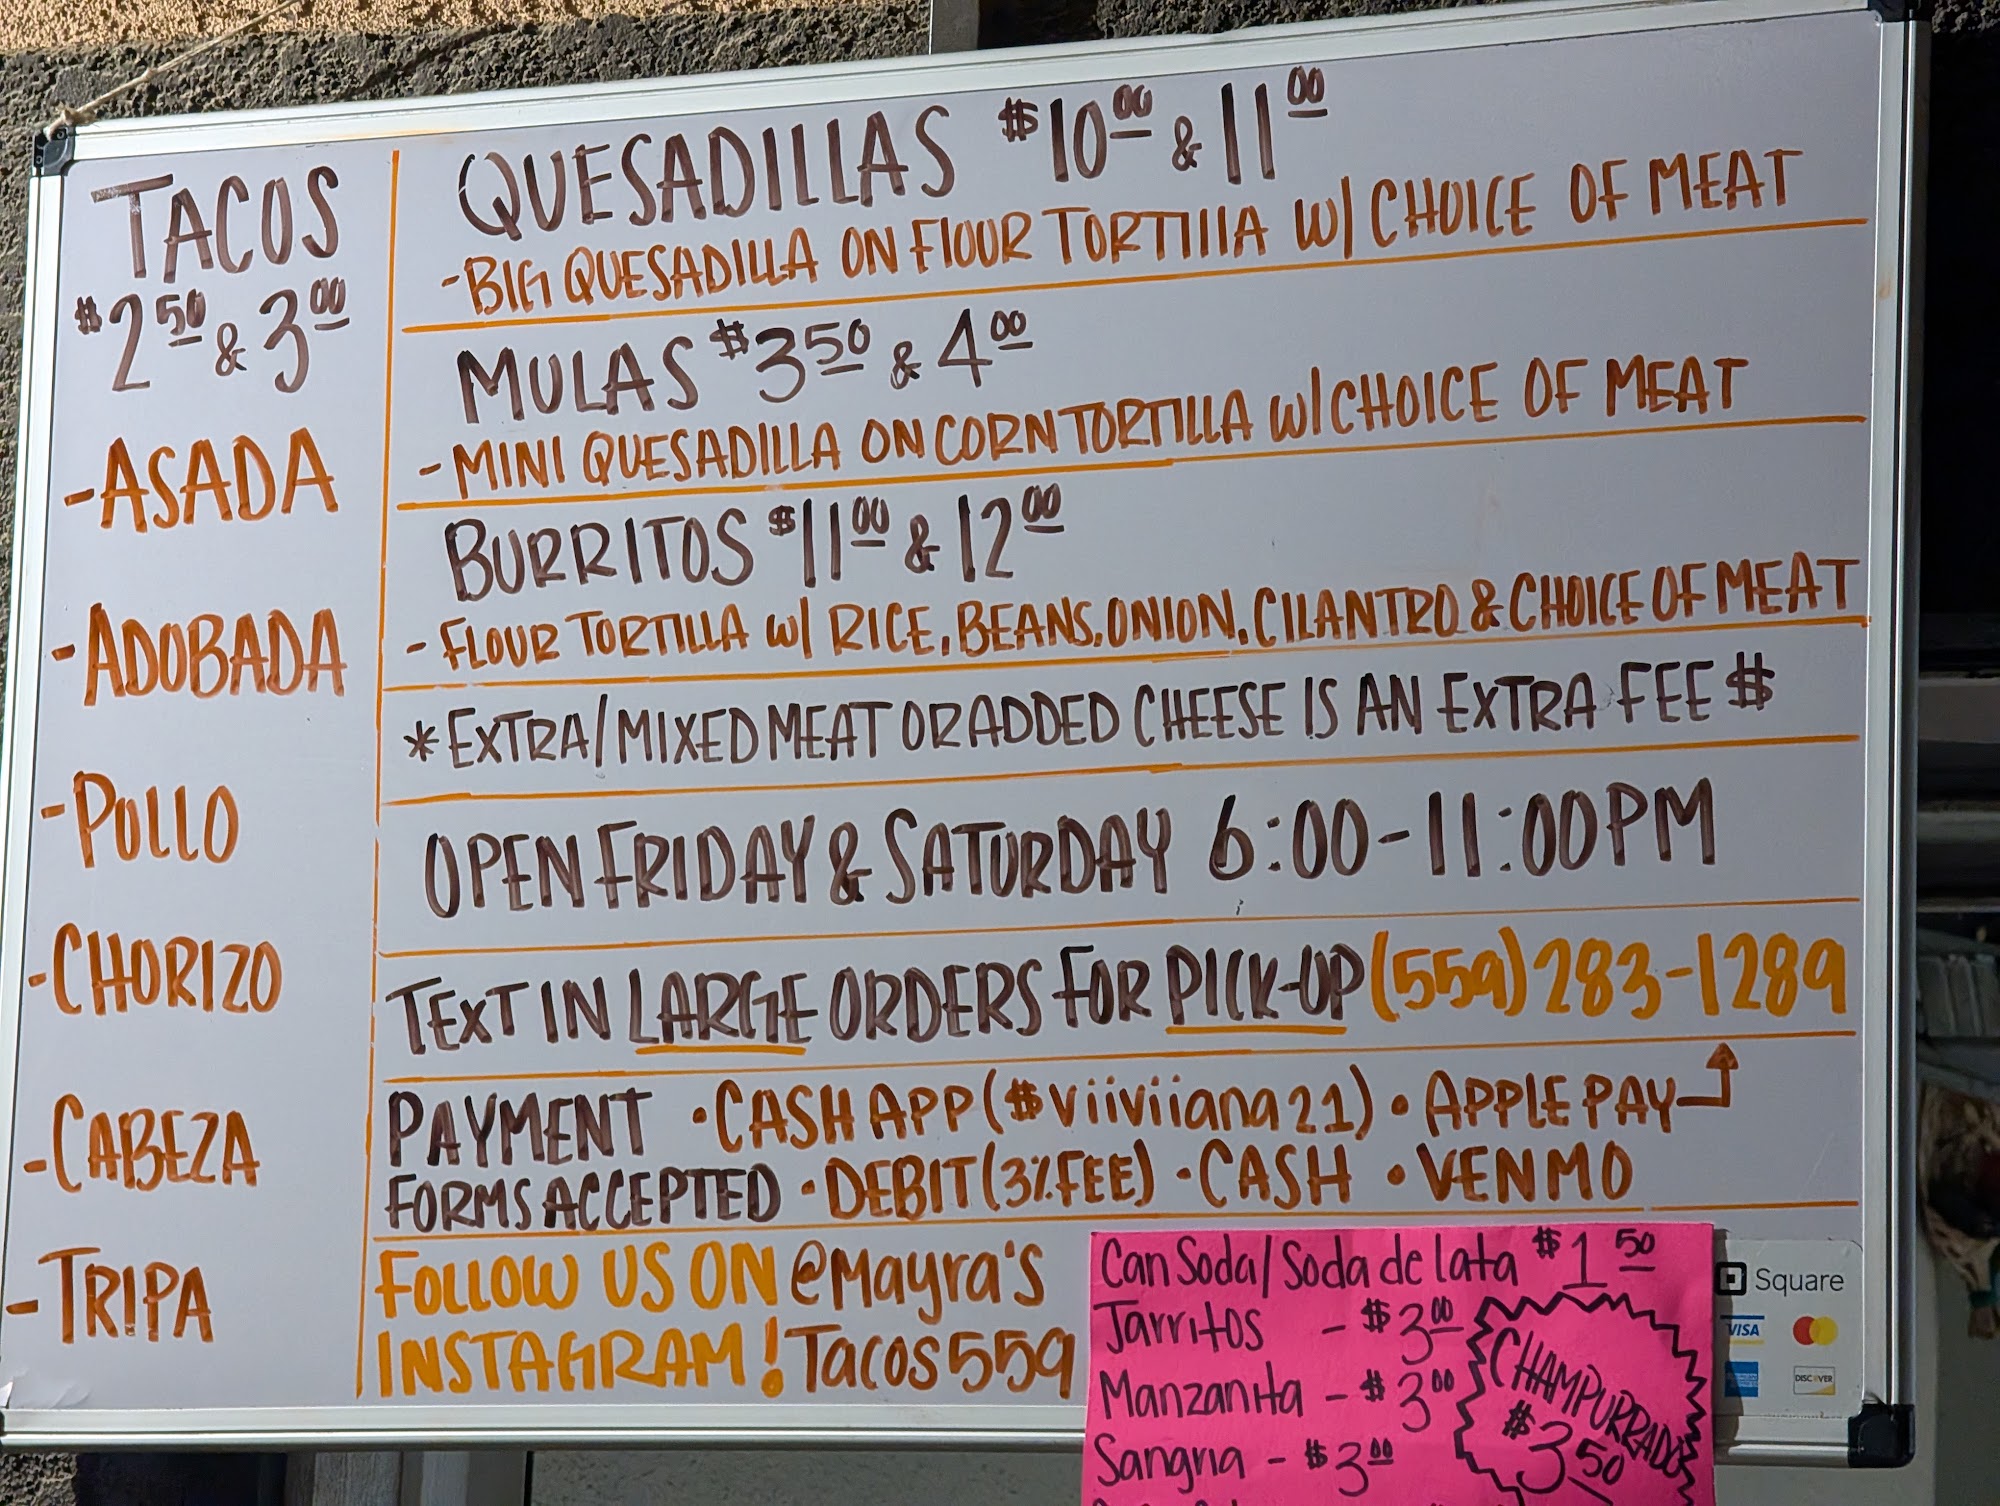 TACOS
$2.50 & 3.00
-ASADA
-ADOBADA
-POLLO
-CHORIZO
-CABEZA
-TRIPA
QUESADILLAS $10.00 & 11.00
-BIG QUESADILLA ON FLOUR TORTILLA W/ CHOICE OF MEAT
MULAS $3.50 & 4.00
-MINI QUESADILLA ON CORN TORTILLA W/CHOICE OF MEAT
BURRITOS $11.00 & 12.00
-FLOUR TORTILLA W/ RICE, BEANS, ONION, CILANTRO & CHOICE OF MEAT
*EXTRA/MIXED MEAT OR ADDED CHEESE IS AN EXTRA FEE $
OPEN FRIDAY & SATURDAY 6:00-11:00PM
TEXT IN LARGE ORDERS FOR PICK-UP (559)283-1289
PAYMENT •CASH APP($viiviiana21) •APPLE PAY
FORMS ACCEPTED •DEBIT(3% FEE) •CASH •VENMO
FOLLOW US ON @Mayra's
INSTAGRAM! Tacos559
Can Soda/Soda de lata $1.50
Jarritos - $3.00
Manzanita - $3.00
Sangria - $3.00
CHAMPURRADO
$3.50
Square
VISA
DISCOVER